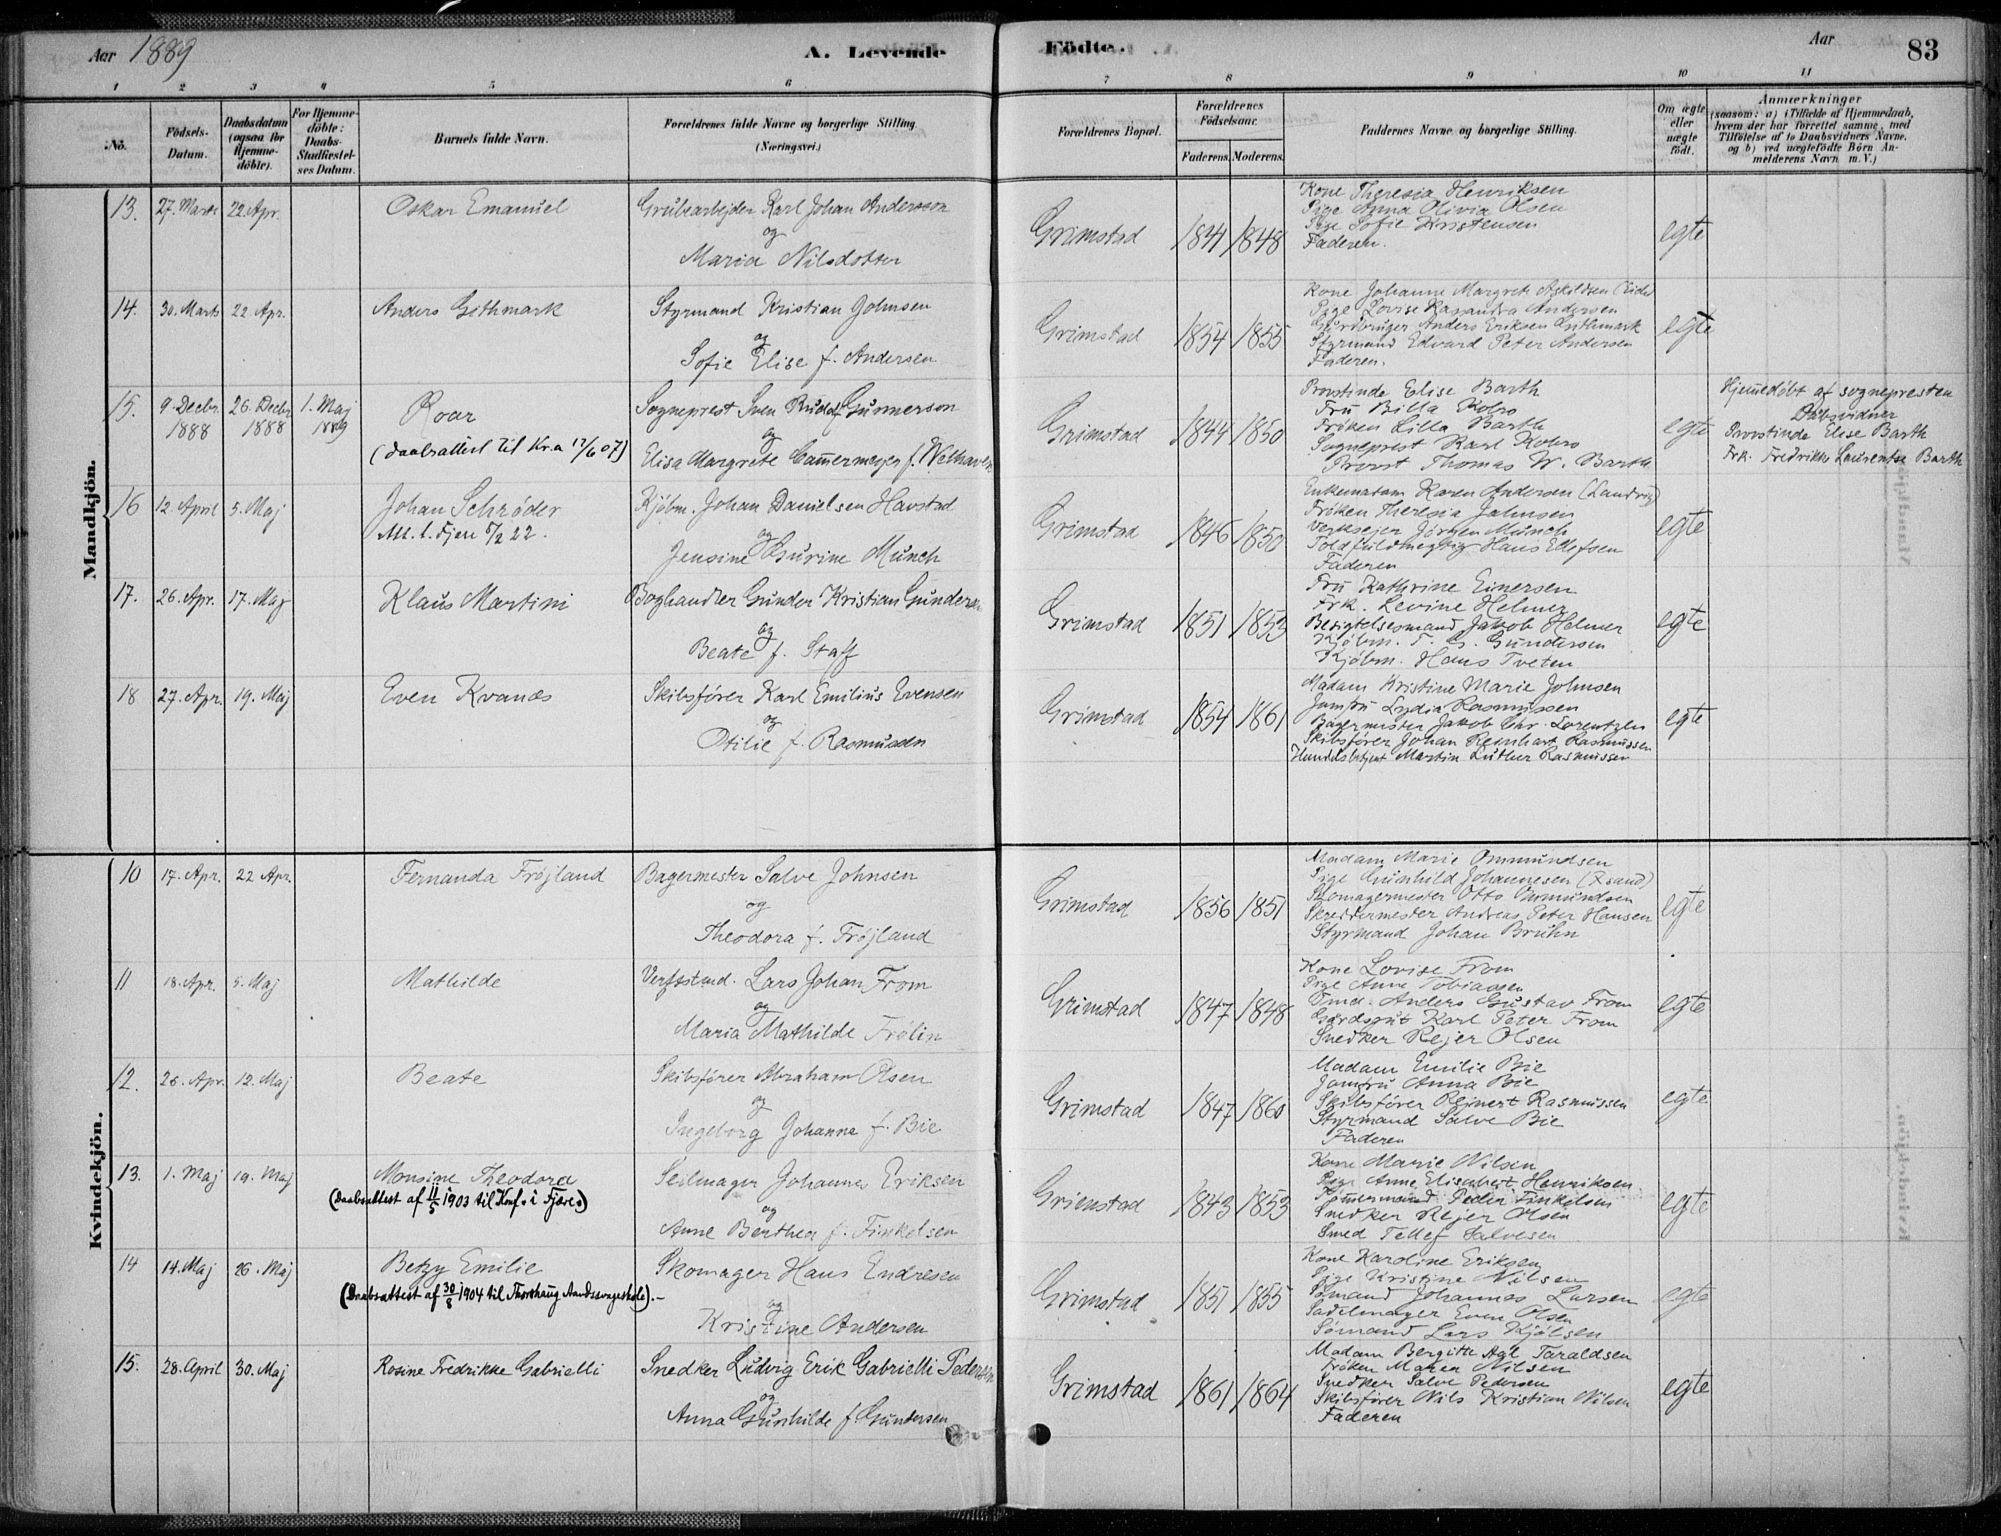 Aar 1889
A. Levende
Födte.
Aar
83
1 2 3 4 5 6 7 8 9 10 11
No.
Födsels-Datum.
Daabsdatum (ogsaa för Hjemme-döbte).
For Hjemme-döbte: Daabs-Stadfæstel-ses Datum.
Barnets fulde Navn.
Forældrenes fulde Navne og borgerlige Stilling
(Næringsvei.)
Forældrenes Bopæl.
Forældrenes Födselsaar.
Faderens. Moderens.
Faddernes Navne og borgerlige Stilling.
Om ægte eller uægte födt.
Anmærkninger
(saasom: a) i Tilfælde af Hjemmedaab, hvem der har forrettet samme, med Tilföielse af to Daabsvidners Navne. og b) ved uægtefödte Börn An-melderens Navn m. V.)
Mandkjön.
13. 27. Marts 22. Apr. Oskar Emanuel
Grubearbejder Karl Johan Andersson
og
Maria Nilsdotter
Grimstad 1841 1848
Kone Theresia Henriksen
Pige Anna Olivia Olsen
Pige Sofie Kristensen
Faderen.
egte
14. 30. Marts 22. Apr. Anders Githmark
Styrmand Kristian Johnsen
og
Sofie Elise f. Andersen
Grimstad 1854 1855
Kone Johanne Margrete
Pige Lovise Kasandra Andersen
Gårdbruger Anders Eriksen Githmark
Styrmand Edvard Peter Andersen
Faderen.
egte
15. 9. Decbr. 1888 26. Decbr. 1888 1. Maj 1889 Roar
(Daabsattest til Kr.a 17/6 07)
Sogneprest Sven Rudolf Gunnerson
og
Elisa Margrete Cammermeyer f. Welhaven
Grimstad 1844 1850
Provstinde Elise Barth
Fru Billa Kobro
Frøken Lilla Barth
Sogneprest Karl Kobro
Provst Thomas W. Barth
egte
Hjemedøbt af sognepresten
Dåbsvidner
Provstinde Elise Barth
Frk. Fredrikke Laurentse Barth
16 12. April 5. Maj Johan Schrøder
Att. t. Fjære 5/2 22.
Kjøbm. Johan Danielsen Havstad
og
Jensine Gurine Munch
Grimstad 1846 1850
Enkemadam Karen Andersen (Landvig)
Frøken Theresia Jahnsen
Verksejer Jørgen Munch
Toldfuldmegtig Hans Ellefsen
Faderen
egte
17. 26. Apr. 17. Maj Klaus Martini
Boghandler Gunder Kristian Gundersen
og
Beate f. Staff
Grimstad 1851 1853
Fru Kathrine Einersen
Frk. Levine Helmer
Besigtelsesmand Jakob Helmer
Kjøbm. T. G. Gundersen
Kjøbm. Hans Tveten
egte
18 27. Apr. 19. Maj Even Kvanæs
Skibsfører Karl Emilius Evensen
og
Otilie f. Rasmussen
Grimstad 1854 1861
Madam Kristine Marie Johnsen
Jomfru Lydia Rasmussen
Bagermester Jakob Chr. Lorentzen
Skibsfører Johan Reinhart Rasmussen
Handelsbetjent Martin Luther Rasmussen
egte
Kvindekjön.
10 17. Apr. 22 Apr. Fernanda Frøjland
Bagermester Salve Johnsen
og
Theodora f. Frøjland
Grimstad 1856 1851
Madam Marie Ommundsen
Pige Gunhild Johannesen
Skomagermester Otto Ommundsen
Skreddermester Andreas Peter Hansen
Styrmand Johan Bruhn
egte
11 18. Apr. 5. Maj Mathilde
Verftstmd. Lars Johan From
og
Maria Mathilde Frølin
Grimstad 1847 1848
Kone Lovise From
Pige Anne Tobiassen
Tmd. Anders Gustav From
Gårdsgut Karl Peter From
Snedker Rejer Olsen
egte
12. 26. Apr. 12. Maj Beate
Skibsfører Abraham Olsen
og
Ingeborg Johanne f. Bie
Grimstad 1847 1860
Madam Emilie Bie
Jomfru Anna Bie
Skibsfører Reinert Rasmussen
Styrmand Salve Bie
Faderen
egte
13. 1. Maj 19. Maj Monsine Theodora
(Daabsattest af 11/5 1903 til Konf. i Fjære)
Seilmager Johannes Eriksen
og
Anne Berthea f. Finkelsen
Grimstad 1843 1853
Kone Marie Nilsen
Pige Anne Elisabert Henriksen
Tømmermand Peder Finkelsen
Snedker Rejer Olsen
Smed Tellef Salvesen
egte
14 14. Maj 26. Maj Betzy Emilie
(Daabsattest af 30/8 1904 til Thorshaug Aandssvageskole).–
Skomager Hans Endresen
og
Kristine Andersen
Grimstad 1851 1855
Kone Karoline Eriksen
Pige Kristine Nilsen
Sømand Johannes Larsen
Sadelmager Even Olsen
Sømand Lars Kjølsen
egte
15. 28. April 30. Maj Rosine Fredrikke Gabrielli
Snedker Ludvig Erik Gabrielli Pedersen
og
Anna Gunhilde f. Gundersen
Grimstad 1861 1864
Madam Bergitte Agt. Taraldsen
Frøken Maren Nilsen
Snedker Salve Pedersen
Skibsfører Nils Kristian Nilsen
Faderen
egte